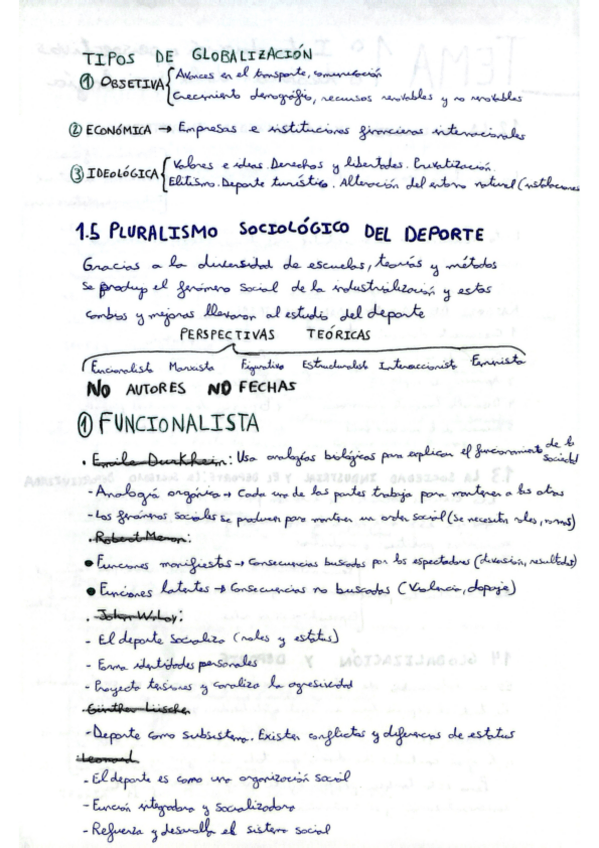 TIPOS DE GLOBALIZACIÓN
① OBJETIVA { Avances en el transporte, comunicación
Crecimiento demográfico, recursos renovables y no renovables
② ECONÓMICA → Empresas e instituciones financieras internacionales
③ IDEOLÓGICA { Valores e ideas. Derechos y libertades. Privatización.
Elitismo. Deporte turístico. Alteración del entorno natural (instalaciones
1.5 PLURALISMO SOCIOLÓGICO DEL DEPORTE
Gracias a la diversidad de escuelas, teorías y métodos
se produjo el fenómeno social de la industrialización y estos
cambios y mejoras llevaron al estudio del deporte
PERSPECTIVAS TEÓRICAS
Funcionalista Marxista Figurativo Estructuralista Interaccionista Feminista
NO AUTORES NO FECHAS
① FUNCIONALISTA
. Emile Durkheim: Usa analogías biológicas para explicar el funcionamiento de la sociedad
- Analogía orgánica → Cada una de las partes trabaja para mantener a las otras
- Los fenómenos sociales se producen para mantener un orden social (se necesitan roles, normas)
. Robert Merton:
• Funciones manifiestas → Consecuencias buscadas por los espectadores (diversión, resultados)
• Funciones latentes → Consecuencias no buscadas (Violencia, dopaje)
. John :
- El deporte socializa (roles y estatus)
- Forma identidades personales
- Proyecta tensiones y canaliza la agresividad
- Günther Lüschen
- Deporte como subsistema. Existen conflictos y diferencias de estatus
. Leonard
- El deporte es como una organización social
- Función integradora y socializadora
- Refuerza y desarrolla el sistema social